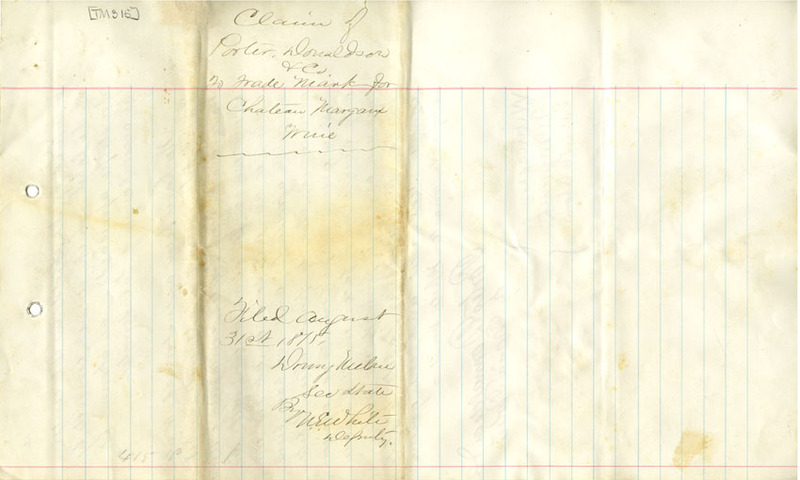 [TM 315]
Claim of
Porter, Donaldson
& Co
To Trade Mark for
Chateau Margaux
Wine
Filed August
31st 1875
Sec State
By
White
Deputy.